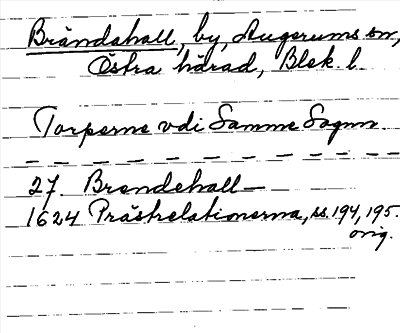 Brändahall, by, Augerums sn,
Östra härad, Blek. l.
Torperne vdi Samme Sognn
27. Brendehall—
1624 Prästrelationerna, ss. 194, 195.
orig.